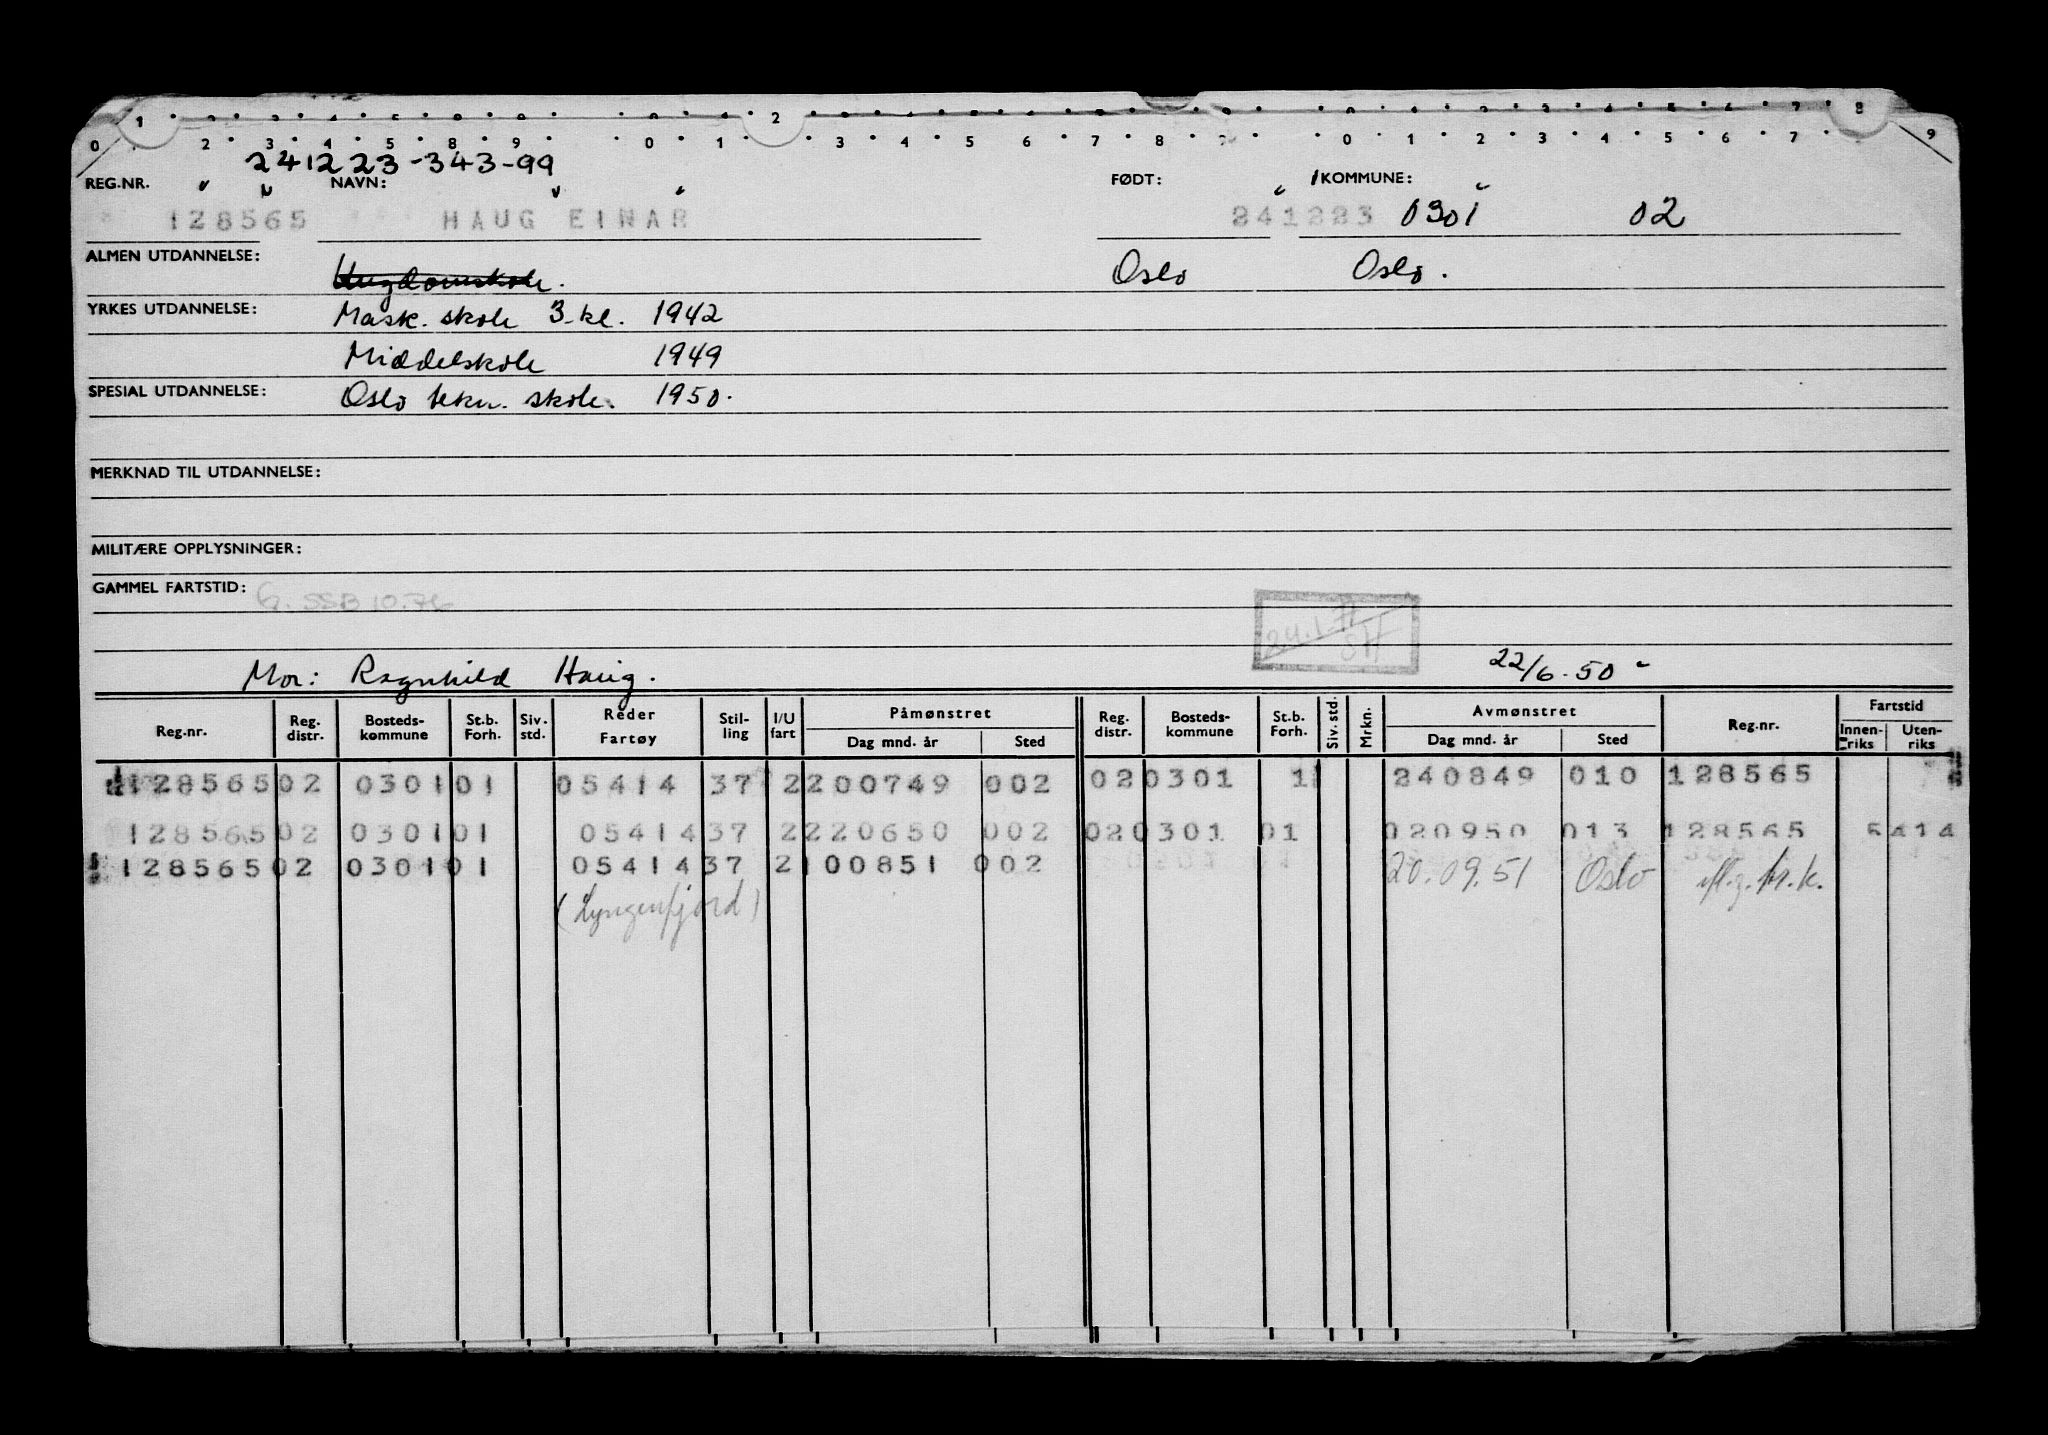 1 2 3 4 5 8 9 0 1 2 3 4 5 6 7 8 9 0 1 2 3 4 5 6 7 8
0 2 3 4 5 8 9 0 1 2 3 4 5 6 7 8 0 1 2 3 4 5 6 7 9
241223-343-99
REG.NR. NAVN: FØDT: KOMMUNE:
128565 HAUG EINAR 241223 0301 02
ALMEN UTDANNELSE: Oslo Oslo.
YRKES UTDANNELSE: Mask. skole 3 kl. 1942
Middelskole 1949
SPESIAL UTDANNELSE: Oslo tekn. skole. 1950.
MERKNAD TIL UTDANNELSE:
MILITÆRE OPPLYSNINGER:
GAMMEL FARTSTID: G. SSB 10.76
Mor: Ragnhild Haug. 22/6.50
Reg.nr. Reg. distr. Bosteds-kommune St.b. Forh. Siv. std. Reder Fartøy Stil-ling I/U fart Påmønstret Dag mnd. år Sted Reg. distr. Bosteds-kommune St.b. Forh. Siv. std. Mrkn. Avmønstret Dag mnd. år Sted Reg.nr. Fartstid Innen-riks Uten-riks
128565 02 0301 01 05414 37 2 200749 002 02 0301 1 240849 010 128565
128565 02 0301 01 05414 37 2 220650 002 02 0301 01 020950 013 128565 5414
128565 02 0301 01 05414 37 2 100851 002 20.09.51 Oslo
(Lyngenfjord)